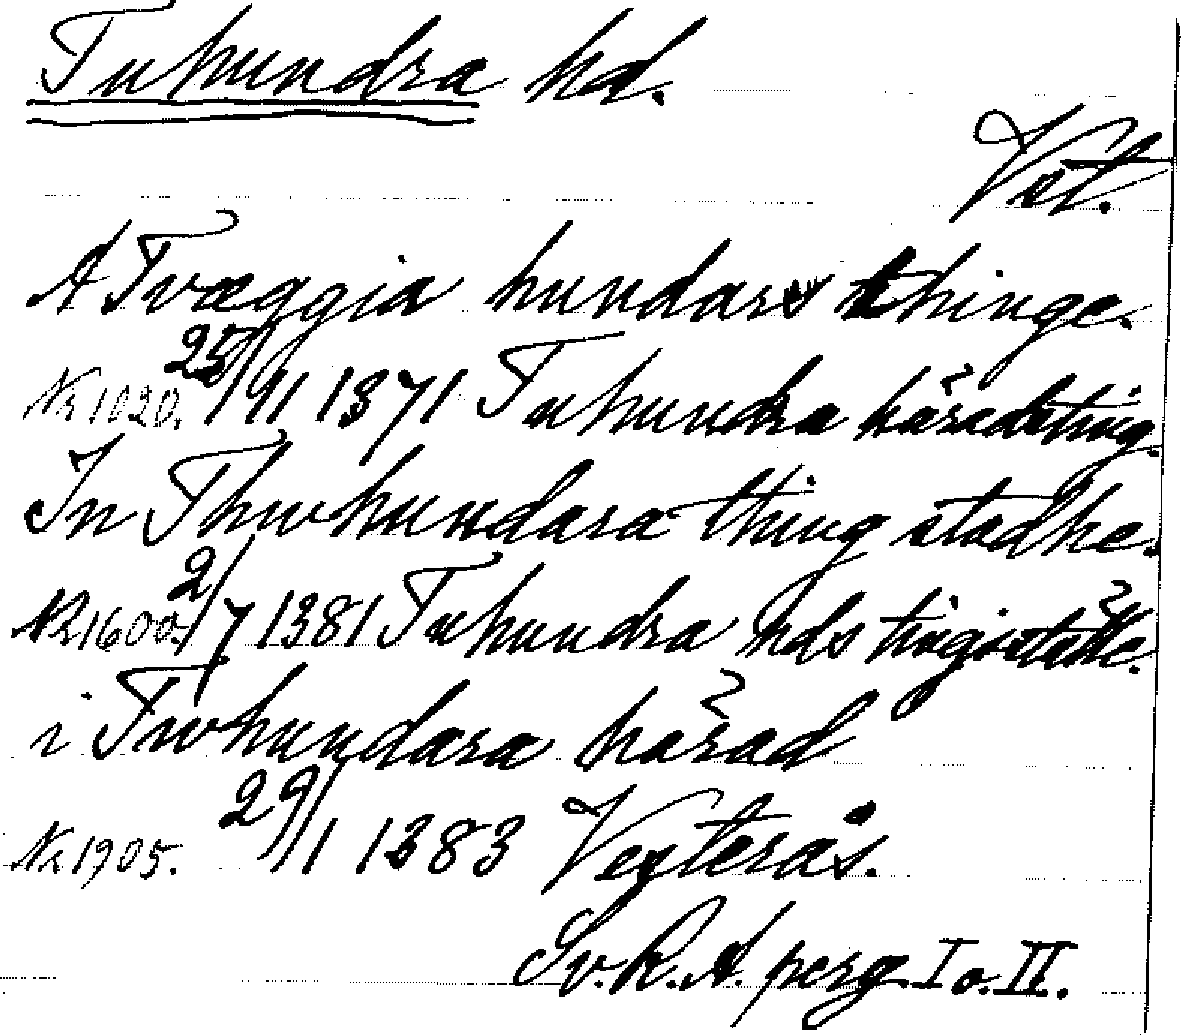 Tuhundra hd.
Vst.
A Tvæggia hundars thinge.
Nr 1020. 25/11 1371 Tuhundra häradsting.
In Thwhundara thing stadhe.
Nr 1600. 2/7 1381 Tuhundra hds tingställe.
i Twhundara härad
Nr 1905. 29/1 1383 Vesterås.
Sv. R. A. perg I o. II.